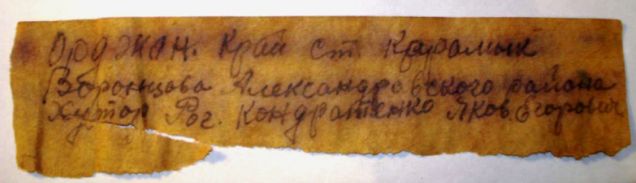 Орджон. Край ст Карамык
Воронцова Александровского района
Хутор Рог. Кондратенко Яков Егорович